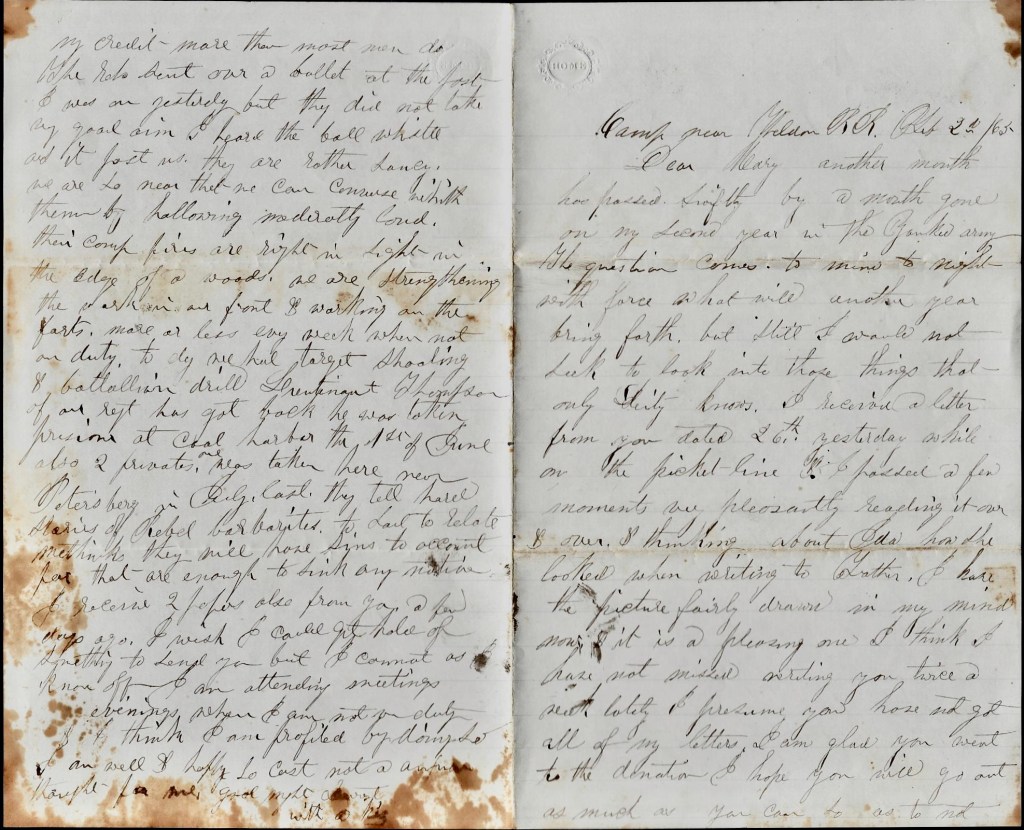 HOME
Camp near Weldon R R. Feb 2nd /65
Dear Mary another month
has passed. Swiftly by a month gone
on my second year in the Yankee army
The question comes. to mind to night
with force what will another year
bring forth. but still I would not
seek to look into those things that
only Deity knows. I received a letter
from you dated 26th. yesterday while
on the picket line I passed a few
moments very pleasantly reading it over
& over. & thinking about Eda how she
looked when writing to Father. I have
the picture fairly drawn in my mind
now, & it is a pleasing one I think I
have not missed writing you twice a
week lately I presume you have not got
all of my letters. I am glad you went
to the donation I hope you will go out
as much as you can so as to not
my credit more than most men do
The Rebs sent our a bullet at the post
I was on yesterday but they did not take
very good aim I heard the ball whistle
as it past us. they are rather saucy.
we are so near that we can converse with
them by hallowing moderatly loud.
their camp fires are right in sight in
the edge of a woods. we are strengthening
the works in our front & working on the
forts. more or less evry week when not
on duty. to day we had target shooting
& battallion drill Lieutenant Thompson
of our regt has got back he was taken
prisioner at Coal harbor the 1st of June
also 2 privates, one was taken here near
Petersberg in July last. they tell hard
stories of Rebel barbarites. to sad to relate
methinks they will have sins to account
for that are enough to sink any nation.
I receive 2 papers also from you a few
days ago. I wish I could get hold of
somethig to send you but I cannot as I
know off I am attending meetings
evenings when I am not on duty
& I think I am profited by doing so
I am well & happy so cast not a anxious
thought for me, good night
with a kiss